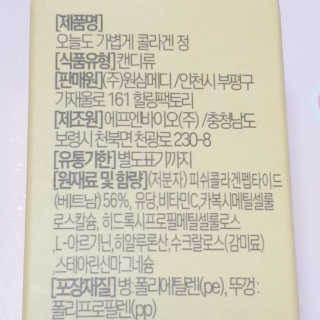 [제품명]
오늘도 가볍게 콜라겐 정
[식품유형]캔디류
[판매원](주)원삼메디/인천시 부평구
가재울로 161 힐링팩토리
[제조원]에프엔바이오(주) /충청남도
보령시 천북면 천광로 230-8
[유통기한]별도표기까지
[원재료 및 함량](저분자)피쉬콜라겐펩타이드
(베트남) 56%, 유당,비타민C,카복시메틸셀룰
로스칼슘, 히드록시프로필메틸셀룰로스
,L-아르기닌,히알루론산,수크랄로스(감미료)
,스테아린산마그네슘
[포장재질] 병:폴리에틸렌(pe), 뚜껑:
폴리프로필렌(pp)